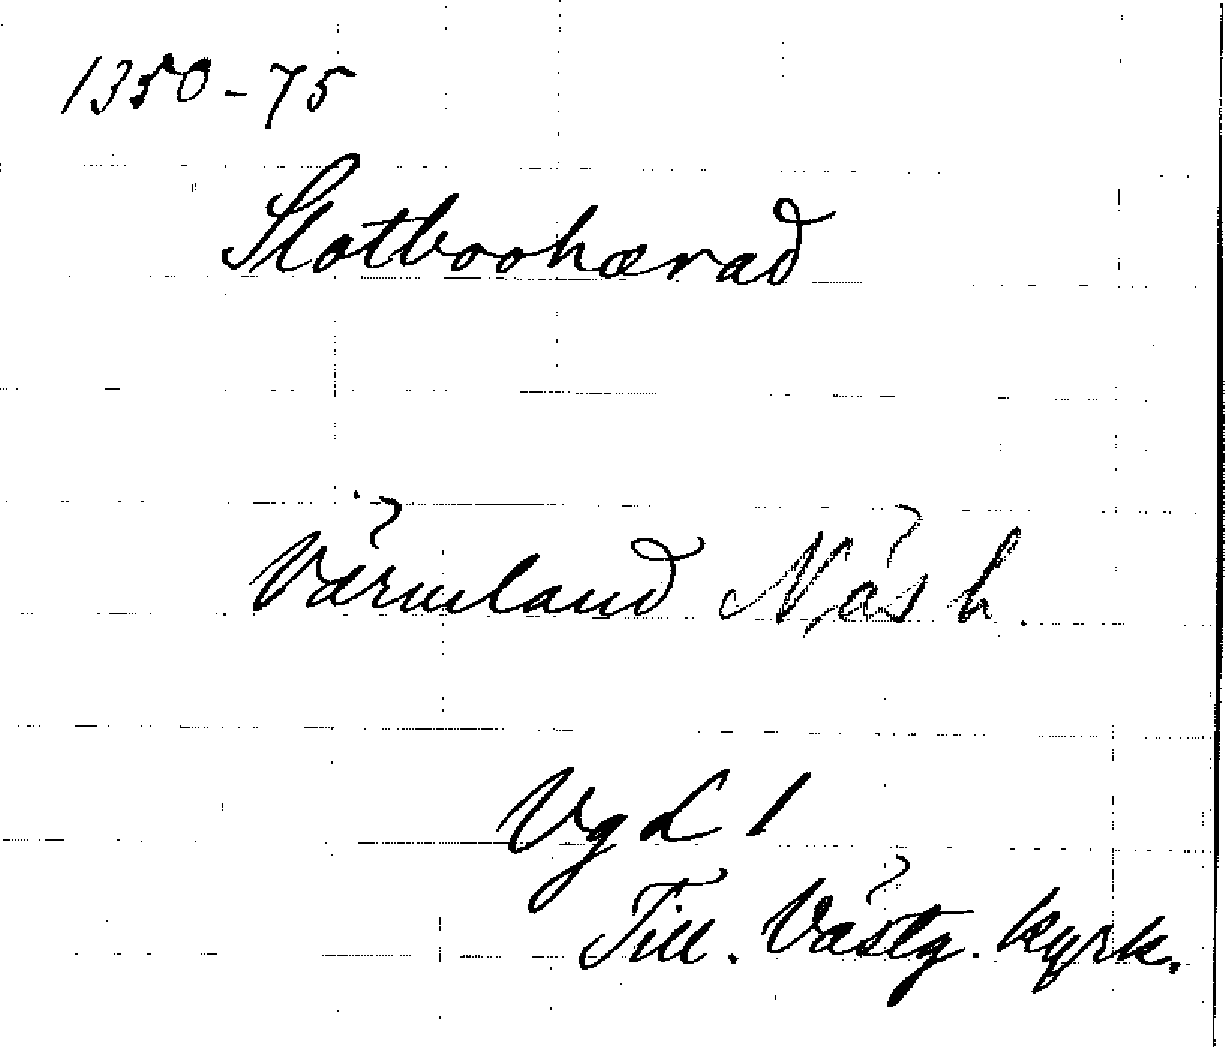 1350-75
Slotboohærad
Värmland Näs h.
VgL 1
Till. Västg. kyrk.